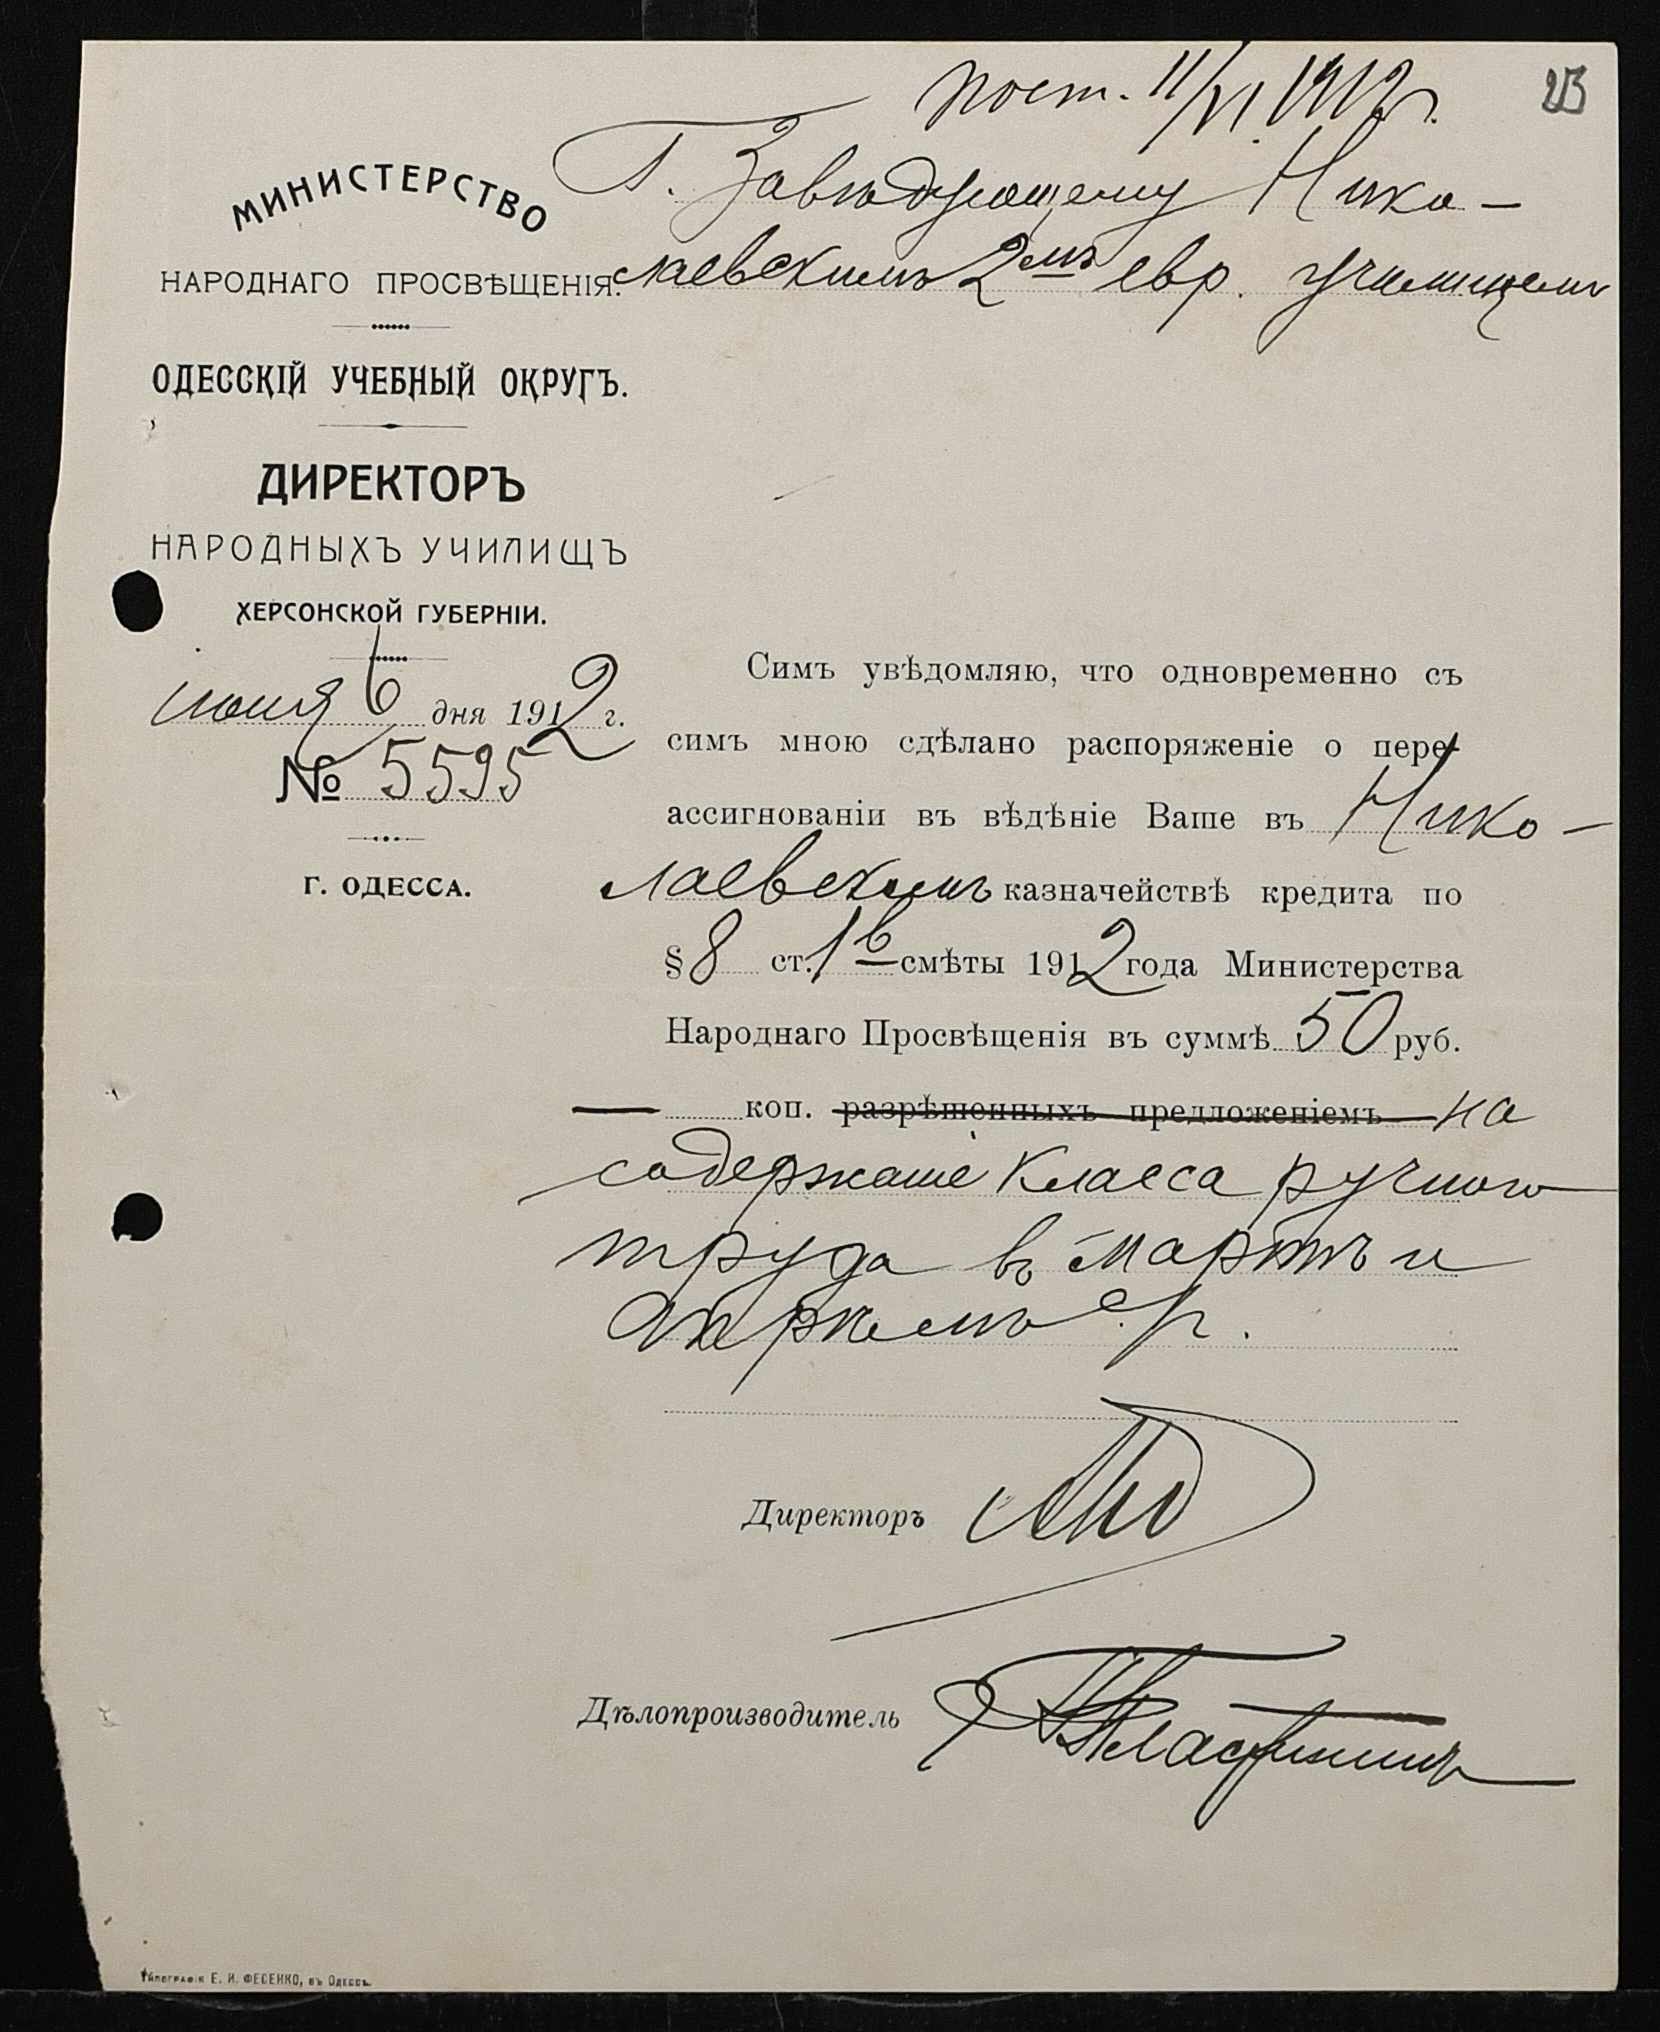 пост. 11/VI 1912 г.
23
Г. Завѣдующему Нико-
лаевскимъ 2мъ евр. училищемъ
МИНИСТЕРСТВО
НАРОДНАГО ПРОСВѢЩЕНІЯ.
ОДЕССКІЙ УЧЕБНЫЙ ОКРУГЪ.
ДИРЕКТОРЪ
НАРОДНЫХЪ УЧИЛИЩЪ
ХЕРСОНСКОЙ ГУБЕРНІИ.
іюня 6 дня 1912 г.
№ 5595
Г. ОДЕССА.
Симъ увѣдомляю, что одновременно съ
симъ мною сдѣлано распоряженіе о пере-
ассигнованіи въ вѣдѣніе Ваше въ Нико-
лаевскомъ казначействѣ кредита по
§ 8 ст. 1 в смѣты 1912 года Министерства
Народнаго Просвѣщенія въ суммѣ 50 руб.
— коп. разрѣшенныхъ предложеніемъ на
содержаніе класса ручного
труда въ мартѣ и
апрѣлѣ с. г.
Директоръ
Дѣлопроизводитель
Типографія Е. И. ФЕСЕНКО, въ Одессѣ.